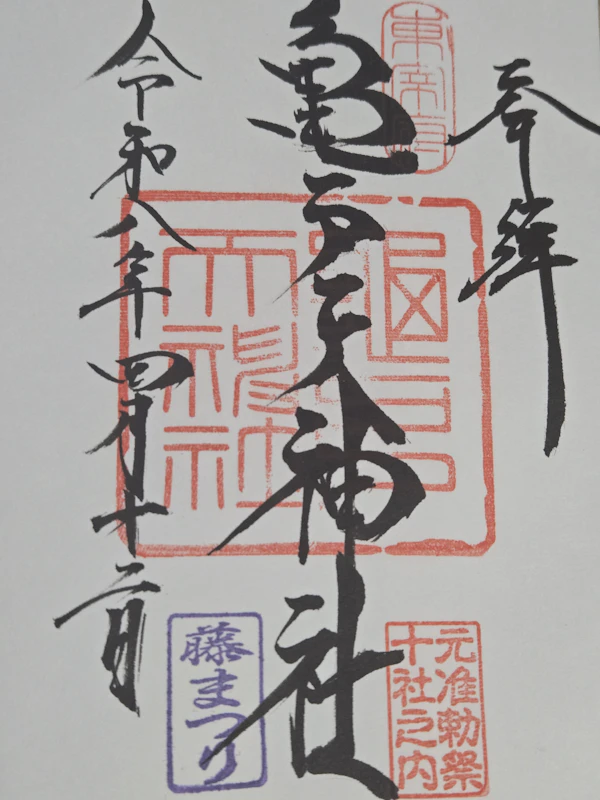 奉拝
東宰府
亀戸天神社
元准勅祭
十社之内
藤まつり
令和八年四月十二日